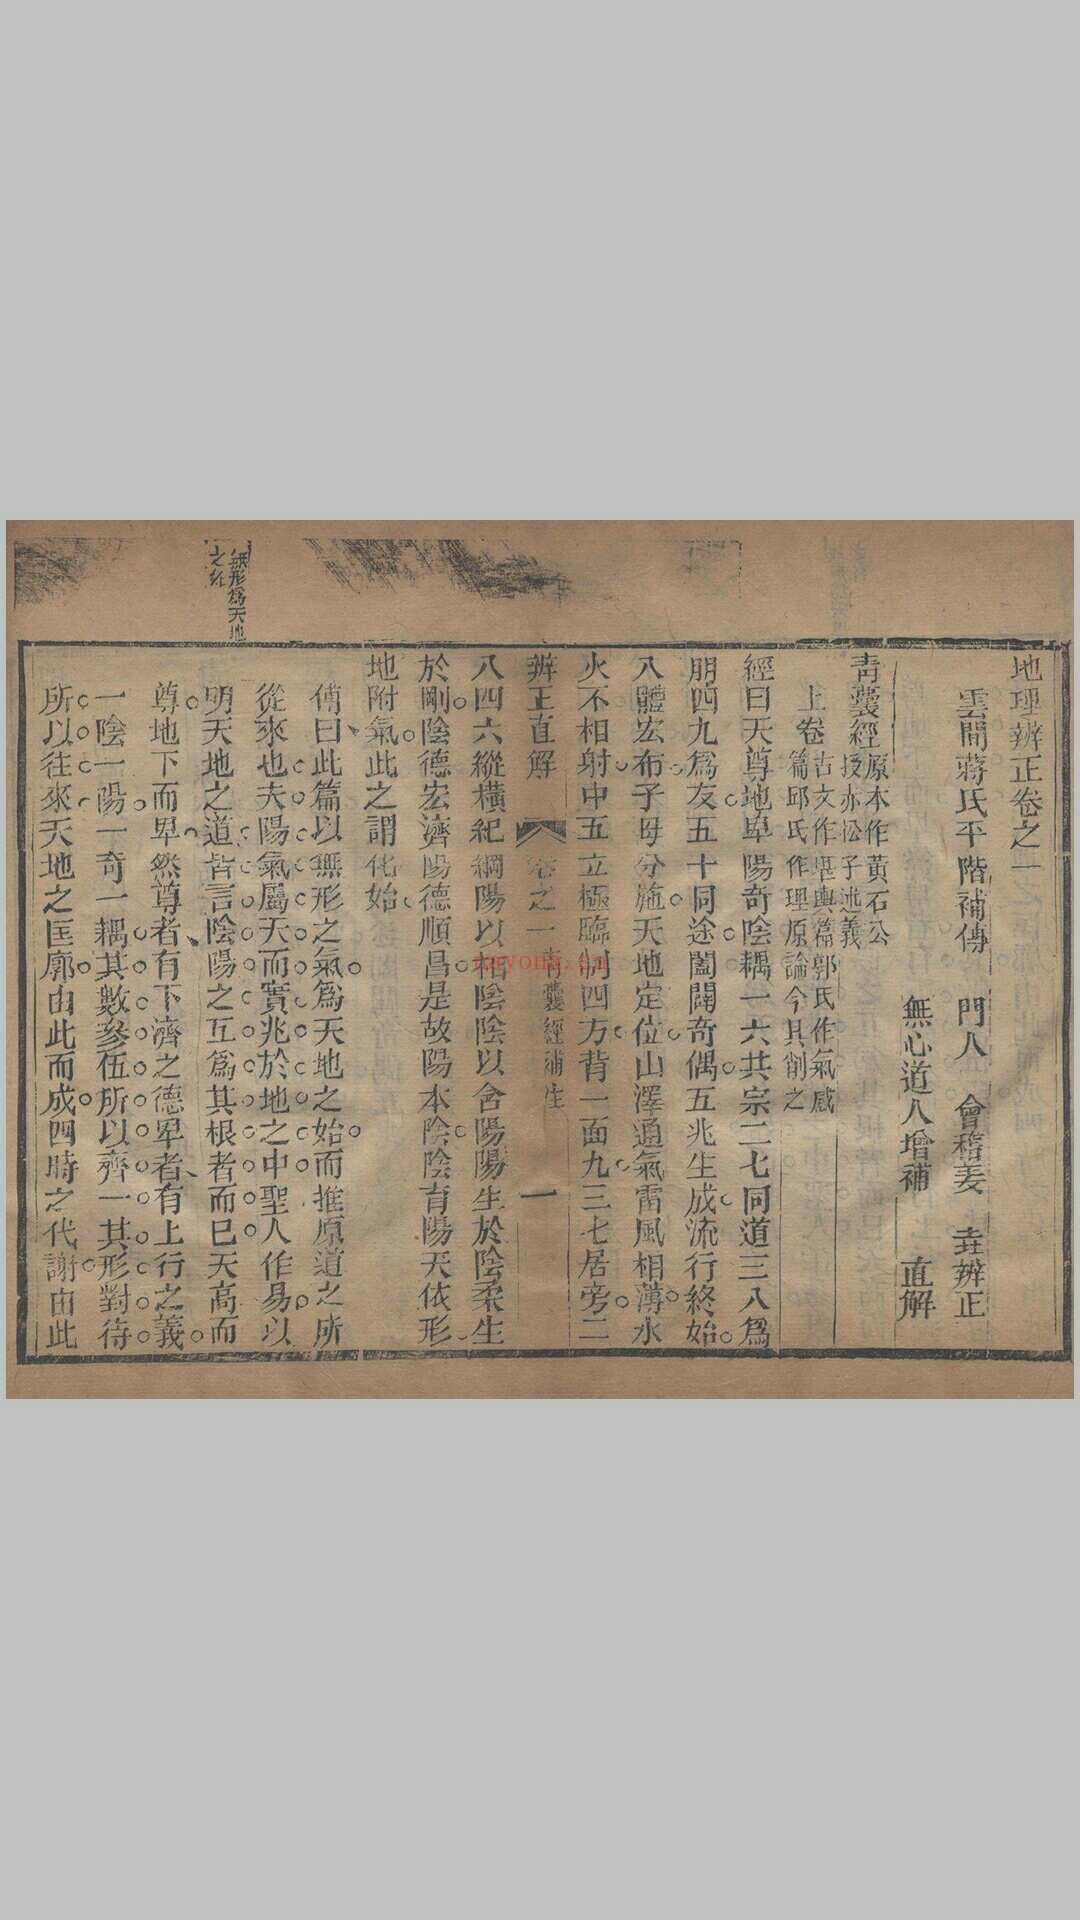 地理辨正卷之一
雲間蔣氏平階補傳　門人　會稽姜　垚辨正
無心道人增補　直解
青囊經原本作黃石公
授赤松子述義
上卷古文作堪輿篇郭氏作氣感
篇邱氏作理原論今具削之
經曰天尊地卑陽奇陰耦一六共宗二七同道三八爲
朋四九爲友五十同途闔闢奇偶五兆生成流行終始
八體宏布子母分施天地定位山澤通氣雷風相薄水
火不相射中五立極臨制四方背一面九三七居旁二
辨正直解　卷之一　青囊經補注　一
八四六縱橫紀綱陽以相陰陰以含陽陽生於陰柔生
於剛陰德宏濟陽德順昌是故陽本陰陰育陽天依形
地附氣此之謂化始
傳曰此篇以無形之氣爲天地之始而推原道之所
從來也夫陽氣屬天而實兆於地之中聖人作易以
明天地之道皆言陰陽之互爲其根者而已天高而
尊地下而卑然尊者有下濟之德卑者有上行之義
一陰一陽一奇一耦其數參伍所以齊一其形對待
所以往來天地之匡廓由此而成四時之代謝由此
無形爲天地
之始
nayona.cn